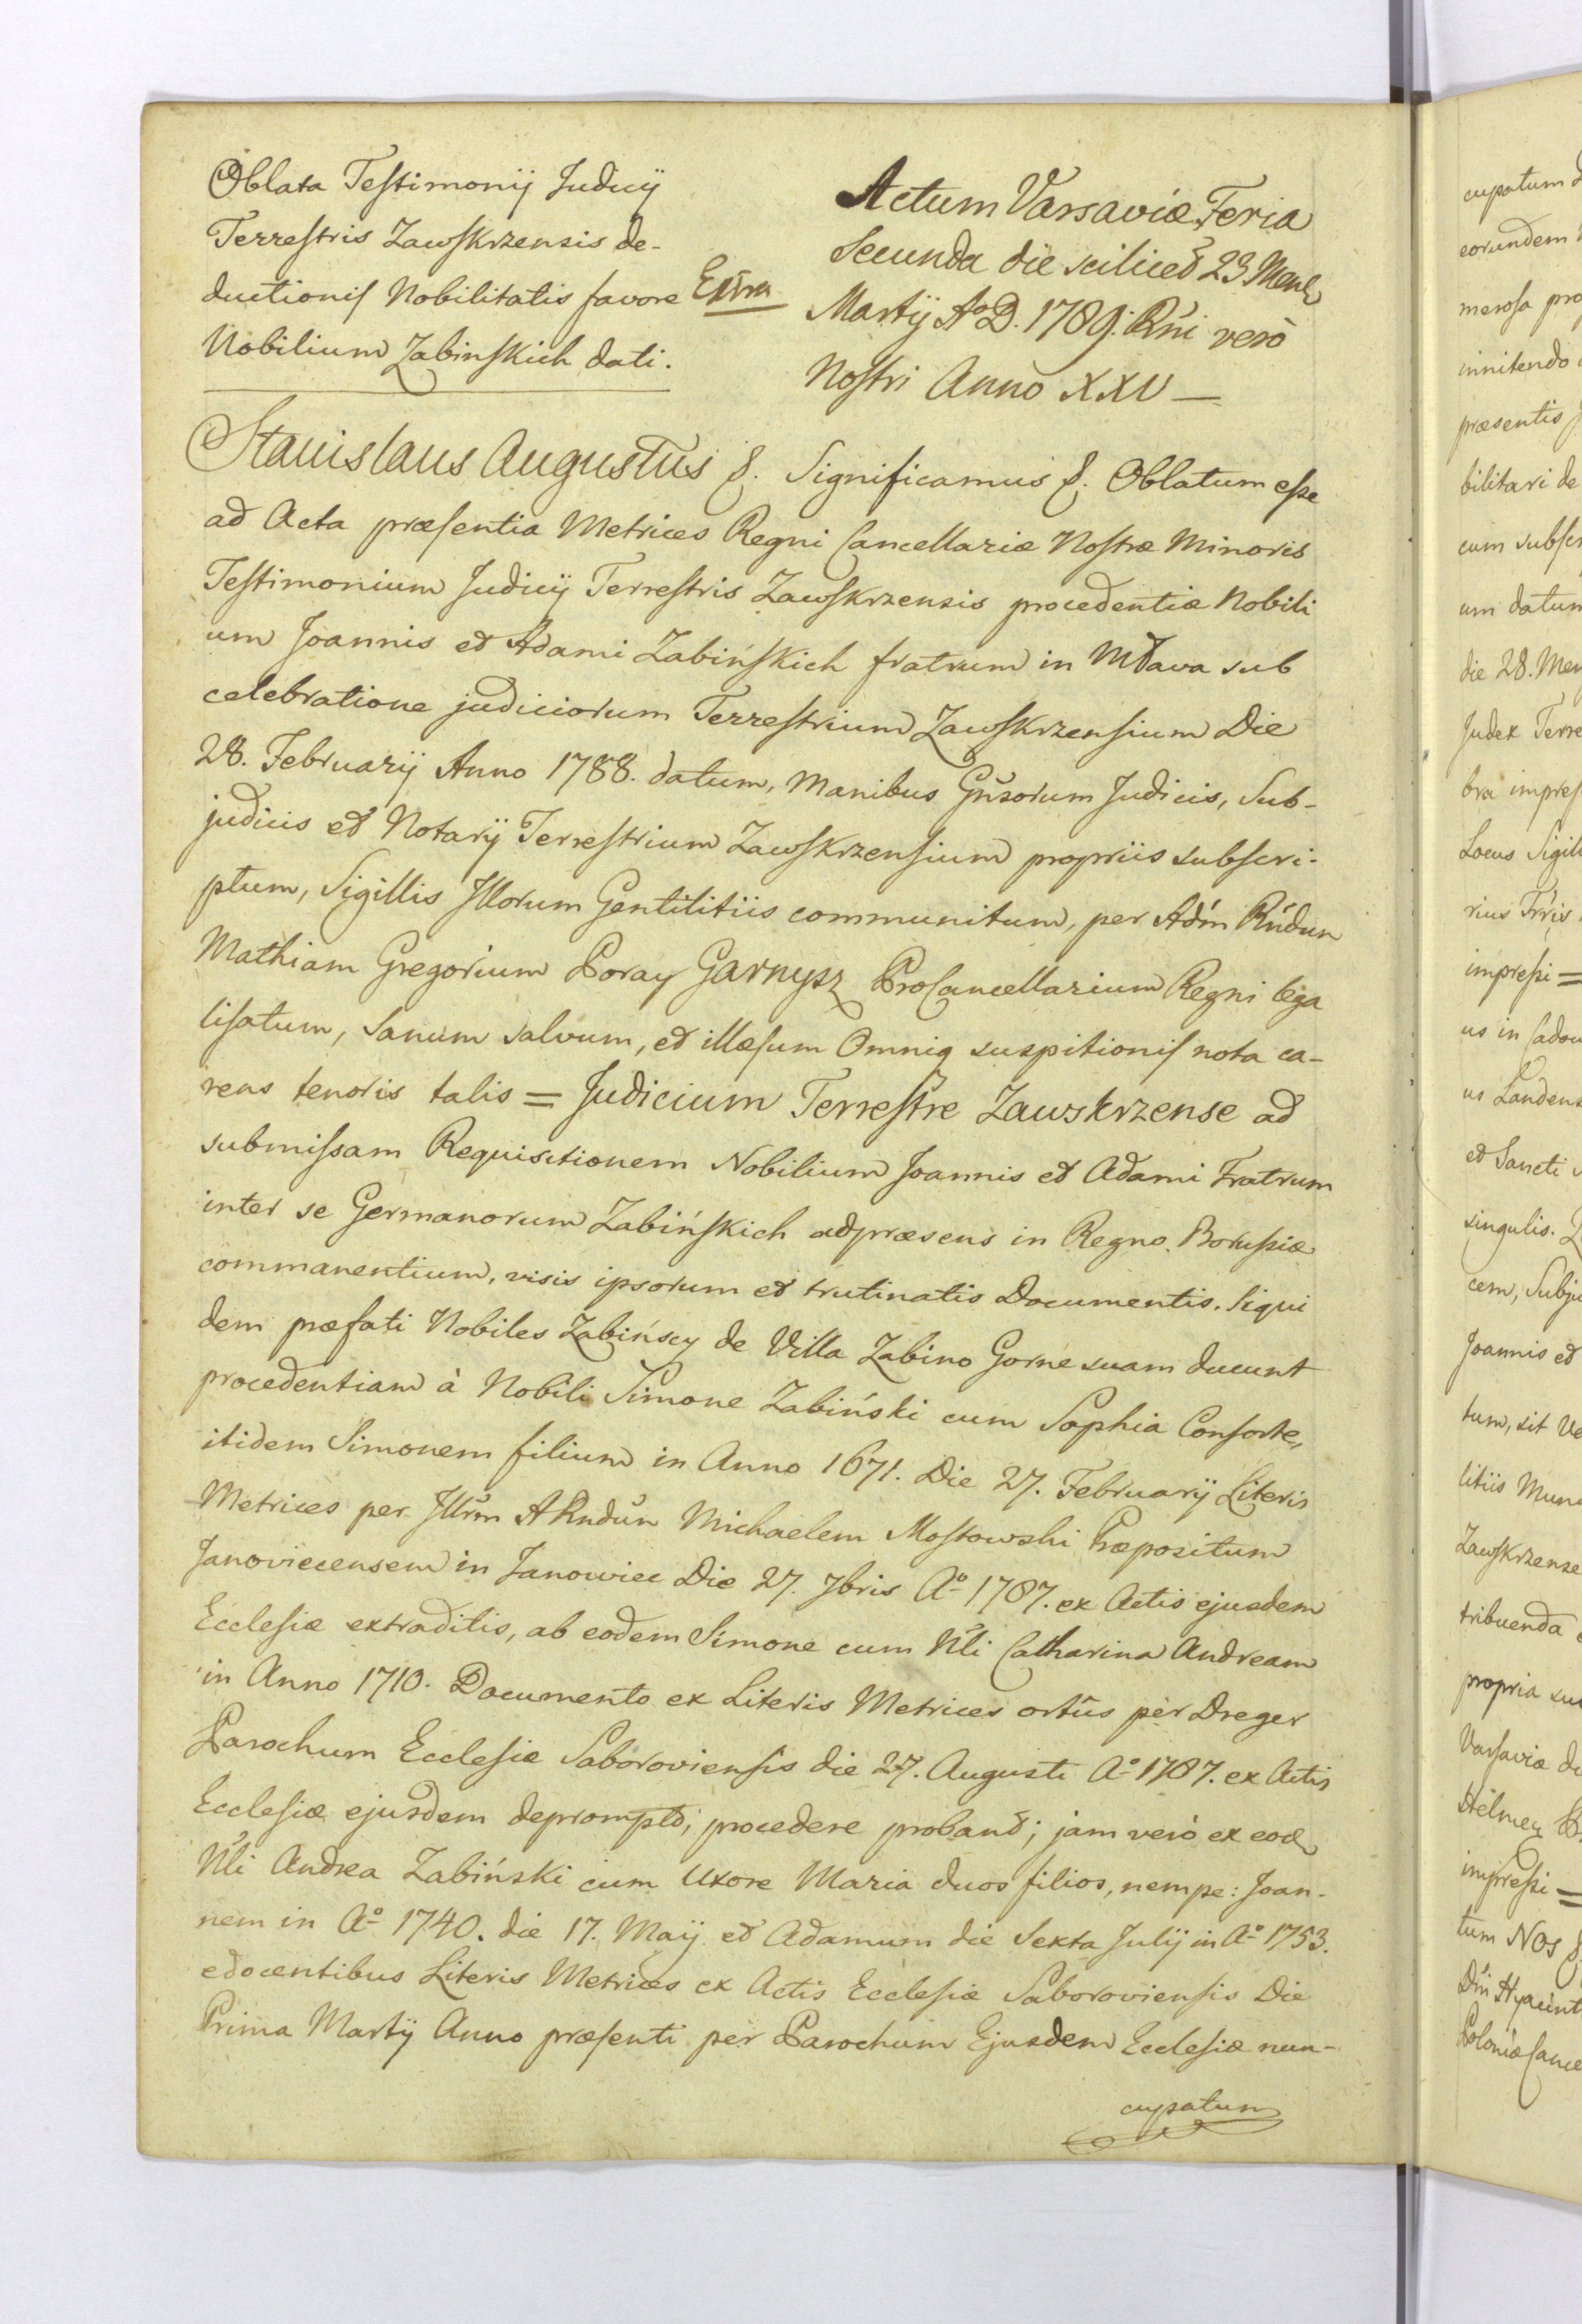 Oblata Testimonij Judicij
Terrestris Zawskrzensis de-
ductionis Nobilitatis favore
Nobilium Zabinskich dati.
Extra
Actum Varsaviæ Feria
Secunda die scilicet 23 Mens
Martij Aº D. 1789. Rńi verò
Nostri Anno XXV —
Stanislaus Augustus &. Significamus &. Oblatum esse
ad Acta præsentia Metrices Regni Cancellariæ Nostræ Minoris
Testimonium Judicij Terrestris Zawskrzensis procedentiæ Nobili
um Joannis et Adami Zabińskich fratrum in Mława sub
celebratione judiciorum Terrestrium Zawskrzensium Die
28. Februarij Anno 1788. datum, Manibus Gnsorum Judicis, Sub-
judicis et Notarij Terrestrium Zawskrzensium propriis subscri-
ptum, Sigillis Illorum Gentilitiis communitum, per Adm Rńdum
Mathiam Gregorium Poray Garnysz ProCancellarium Regni lega
lisatum, sanum salvum, et illæsum Omniq suspitionis nota ca-
rens tenoris talis = Judicium Terrestre Zawskrzense ad
submissam Requisitionem Nobilium Joannis et Adami Fratrum
inter se Germanorum Żabińskich adpræsens in Regno Borussiæ
commanentium, visis ipsorum et trutinatis Documentis. Siqui
dem præfati Nobiles Zabińscy de Villa Zabino Gorne suam ducunt
procedentiam à Nobili Simone Żabiński cum Sophia Consorte,
itidem Simonem filium in Anno 1671. Die 27. Februarij Literis
Metrices per Illrm ARndũn Michaelem Mostowski Præpositum
Janoviecensem in Janowiec Die 27. 7bris Aº 1787. ex Actis ejusdem
Ecclesiæ extraditis, ab eodem Simone cum Nli Catharina Andream
in Anno 1710. Documento ex Literis Metrices ortûs per Dreger
Parochum Ecclesiæ Saboroviensis die 27. Augusti Aº 1787. ex Actis
Ecclesiæ ejusdem deprompto, procedere proband; jam verò ex eod
Nli Andrea Zabiński cum Uxore Maria duos filios, nempe: Joan-
nem in Aº 1740. die 17. Maij et Adamum die Sexta Julij in Aº 1753.
edocentibus Literis Metrices ex Actis Ecclesiæ Saboroviensis Die
Prima Martij Anno præsenti per Parochum Ejusdem Ecclesiæ nun-
cupatum
cupatum
eorundem
merosa pro
innitendo
præsentis
bilitari de
cum subscr
um datum
die 28. Men
Judex Terre
bra impres
Locus Sigil
rius Trris
impressi =
us in Cadou
us Landens
et Sancti
singulis.
cem, Subju
Joannis et
tum, sit Ve
litiis Mun
Zawskrzense
tribuenda
propria su
Varsaviæ d
impressi =
tum Nos &
Dńi Hyacint
Poloniæ Cance